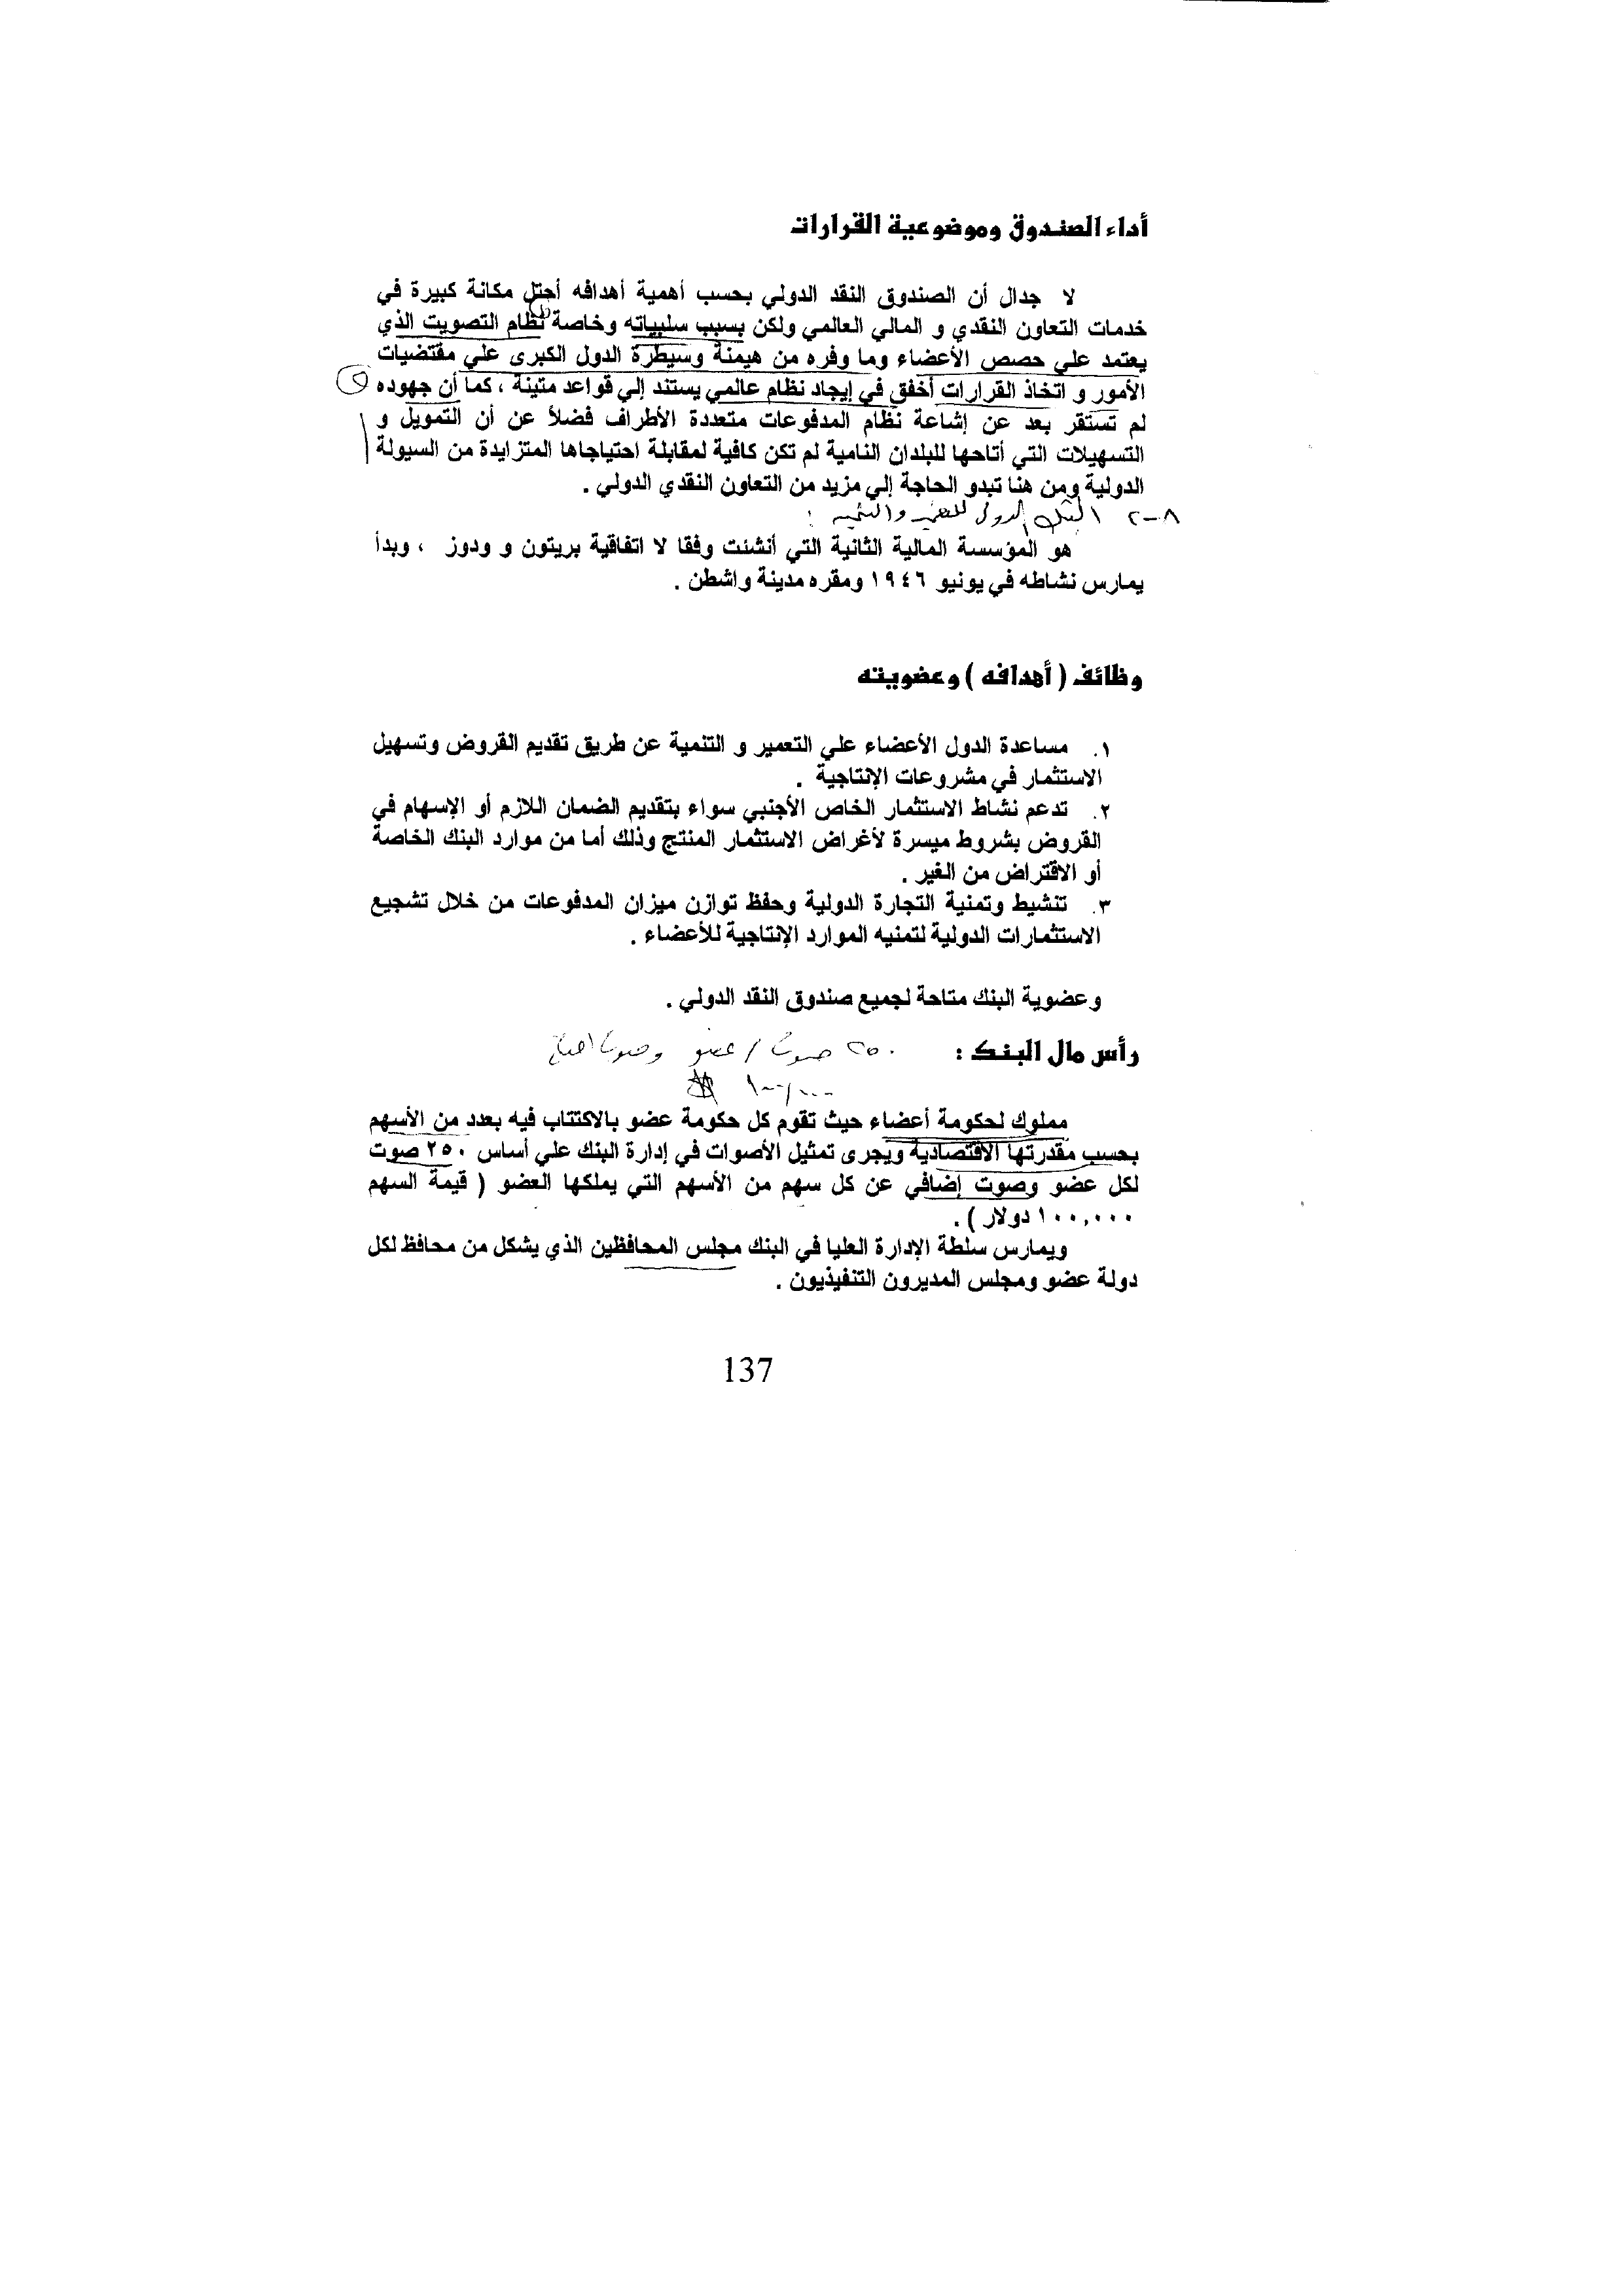 أداء الصندوق وموضوعية القرارات
لا جدال أن الصندوق النقد الدولي بحسب أهمية أهدافه أحتل مكانة كبيرة في
خدمات التعاون النقدي و المالي العالمي ولكن بسبب سلبياته وخاصة نظام التصويت الذي
يعتمد علي حصص الأعضاء وما وفره من هيمنة وسيطرة الدول الكبرى علي مقتضيات
الأمور و اتخاذ القرارات أخفق في إيجاد نظام عالمي يستند إلي قواعد متينة ، كما أن جهوده
لم تستقر بعد عن إشاعة نظام المدفوعات متعددة الأطراف فضلاً عن أن التمويل و
التسهيلات التي أتاحها للبلدان النامية لم تكن كافية لمقابلة احتياجاها المتزايدة من السيولة
الدولية ومن هنا تبدو الحاجة إلي مزيد من التعاون النقدي الدولي .
٨-٢ البنك الدولي للتعمير والتنمية :
هو المؤسسة المالية الثانية التي أنشئت وفقا لا اتفاقية بريتون و ودوز ، وبدأ
يمارس نشاطه في يونيو ١٩٤٦ ومقره مدينة واشطن .
وظائف ( أهدافه ) وعضويته
١. مساعدة الدول الأعضاء علي التعمير و التنمية عن طريق تقديم القروض وتسهيل
الاستثمار في مشروعات الإنتاجية .
٢. تدعم نشاط الاستثمار الخاص الأجنبي سواء بتقديم الضمان اللازم أو الإسهام في
القروض بشروط ميسرة لأغراض الاستثمار المنتج وذلك أما من موارد البنك الخاصة
أو الاقتراض من الغير .
٣. تنشيط وتمنية التجارة الدولية وحفظ توازن ميزان المدفوعات من خلال تشجيع
الاستثمارات الدولية لتمنيه الموارد الإنتاجية للأعضاء .
وعضوية البنك متاحة لجميع صندوق النقد الدولي .
رأس مال البنك : ٢٥٠ صوت / عضو وصوت
١٠٠,٠٠٠ $
مملوك لحكومة أعضاء حيث تقوم كل حكومة عضو بالاكتتاب فيه بعدد من الأسهم
بحسب مقدرتها الاقتصادية ويجرى تمثيل الأصوات في إدارة البنك علي أساس ٢٥٠ صوت
لكل عضو وصوت إضافي عن كل سهم من الأسهم التي يملكها العضو ( قيمة السهم
١٠٠,٠٠٠ دولار ) .
ويمارس سلطة الإدارة العليا في البنك مجلس المحافظين الذي يشكل من محافظ لكل
دولة عضو ومجلس المديرون التنفيذيون .
137